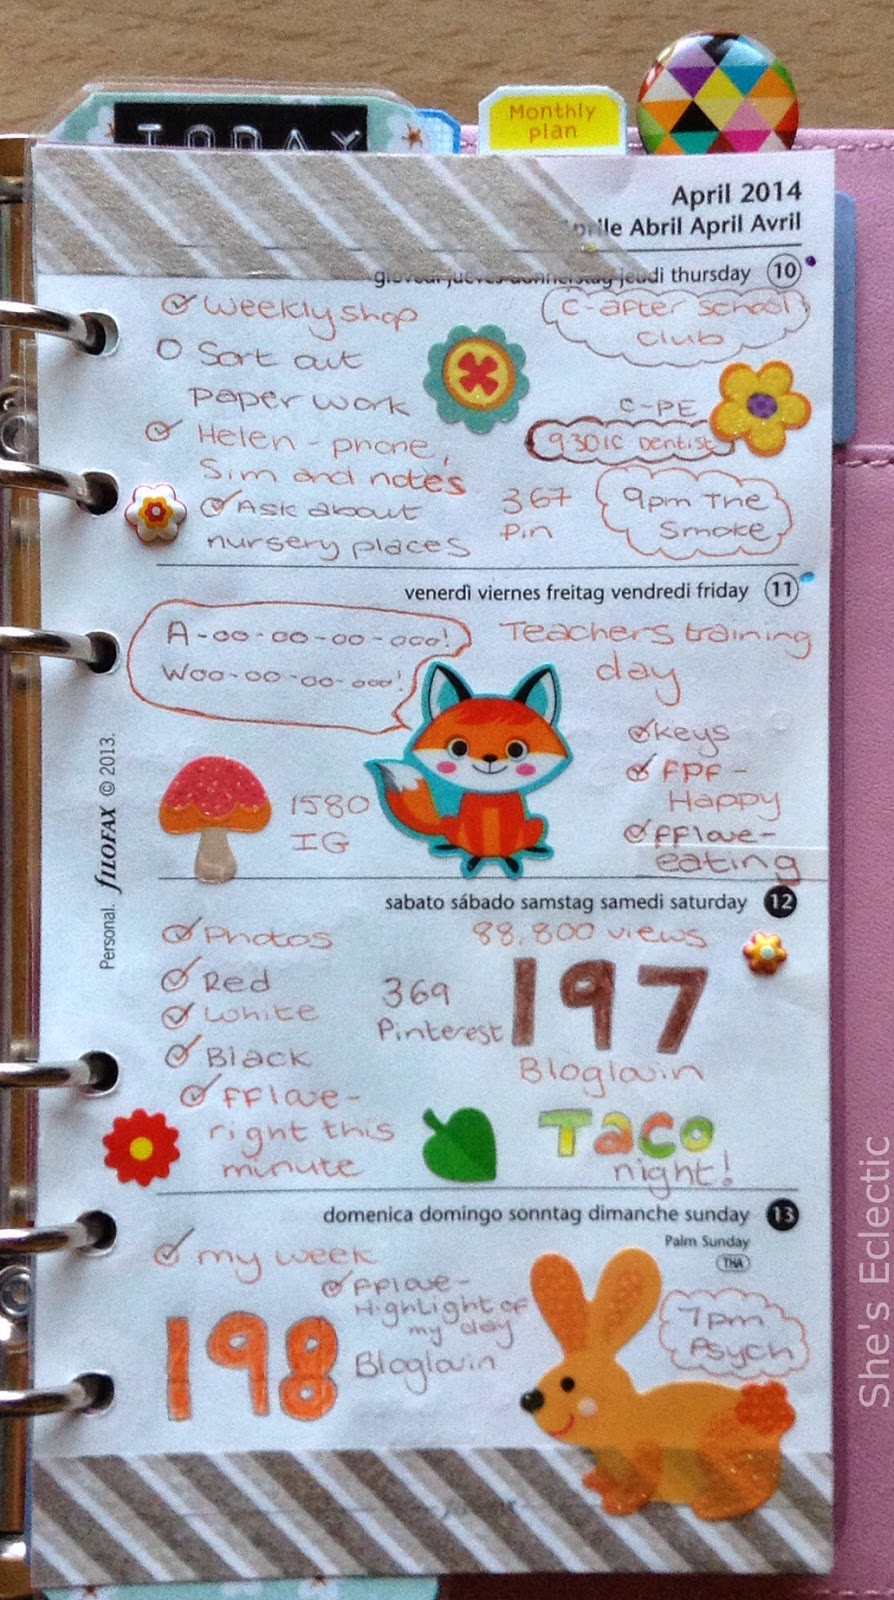 TODAY
Monthly
plan
April 2014
Aprile Abril April Avril
giovedì jueves donnerstag jeudi thursday 10
weekly shop
C-after school
club
Sort out
paper work
C-PE
Helen - phone,
Sim and notes
Dentist
Ask about
nursery places
367
Pin
9pm The
Smoke
venerdì viernes freitag vendredi friday 11
A-oo-oo-oo-ooo!
Woo-oo-oo-ooo!
Teachers training
day
Keys
FPF -
Happy
fflove -
eating
1580
IG
sabato sábado samstag samedi saturday 12
Photos
Red
White
Black
fflove -
right this
minute
88,800 views
369
Pinterest
197
Bloglovin
Taco
night!
domenica domingo sonntag dimanche sunday 13
Palm Sunday
THA
my week
fflove -
Highlight of
my day
198
Bloglovin
7pm
Psych
Personal. fILOFAX © 2013.
She's Eclectic